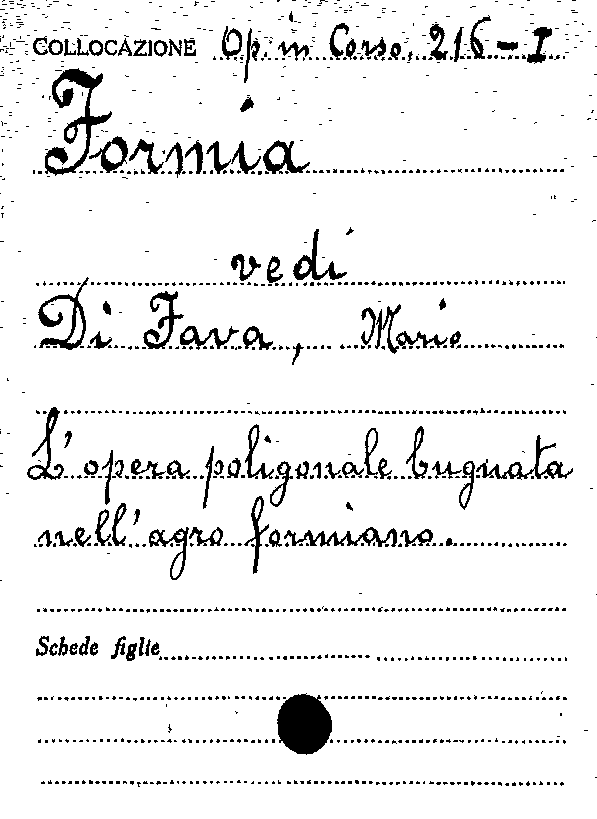 COLLOCAZIONE Op. in Corso, 216 - I
Formia
vedi
Di Fava, Mario
L'opera poligonale bugnata
nell'agro formiano.
Schede figlie